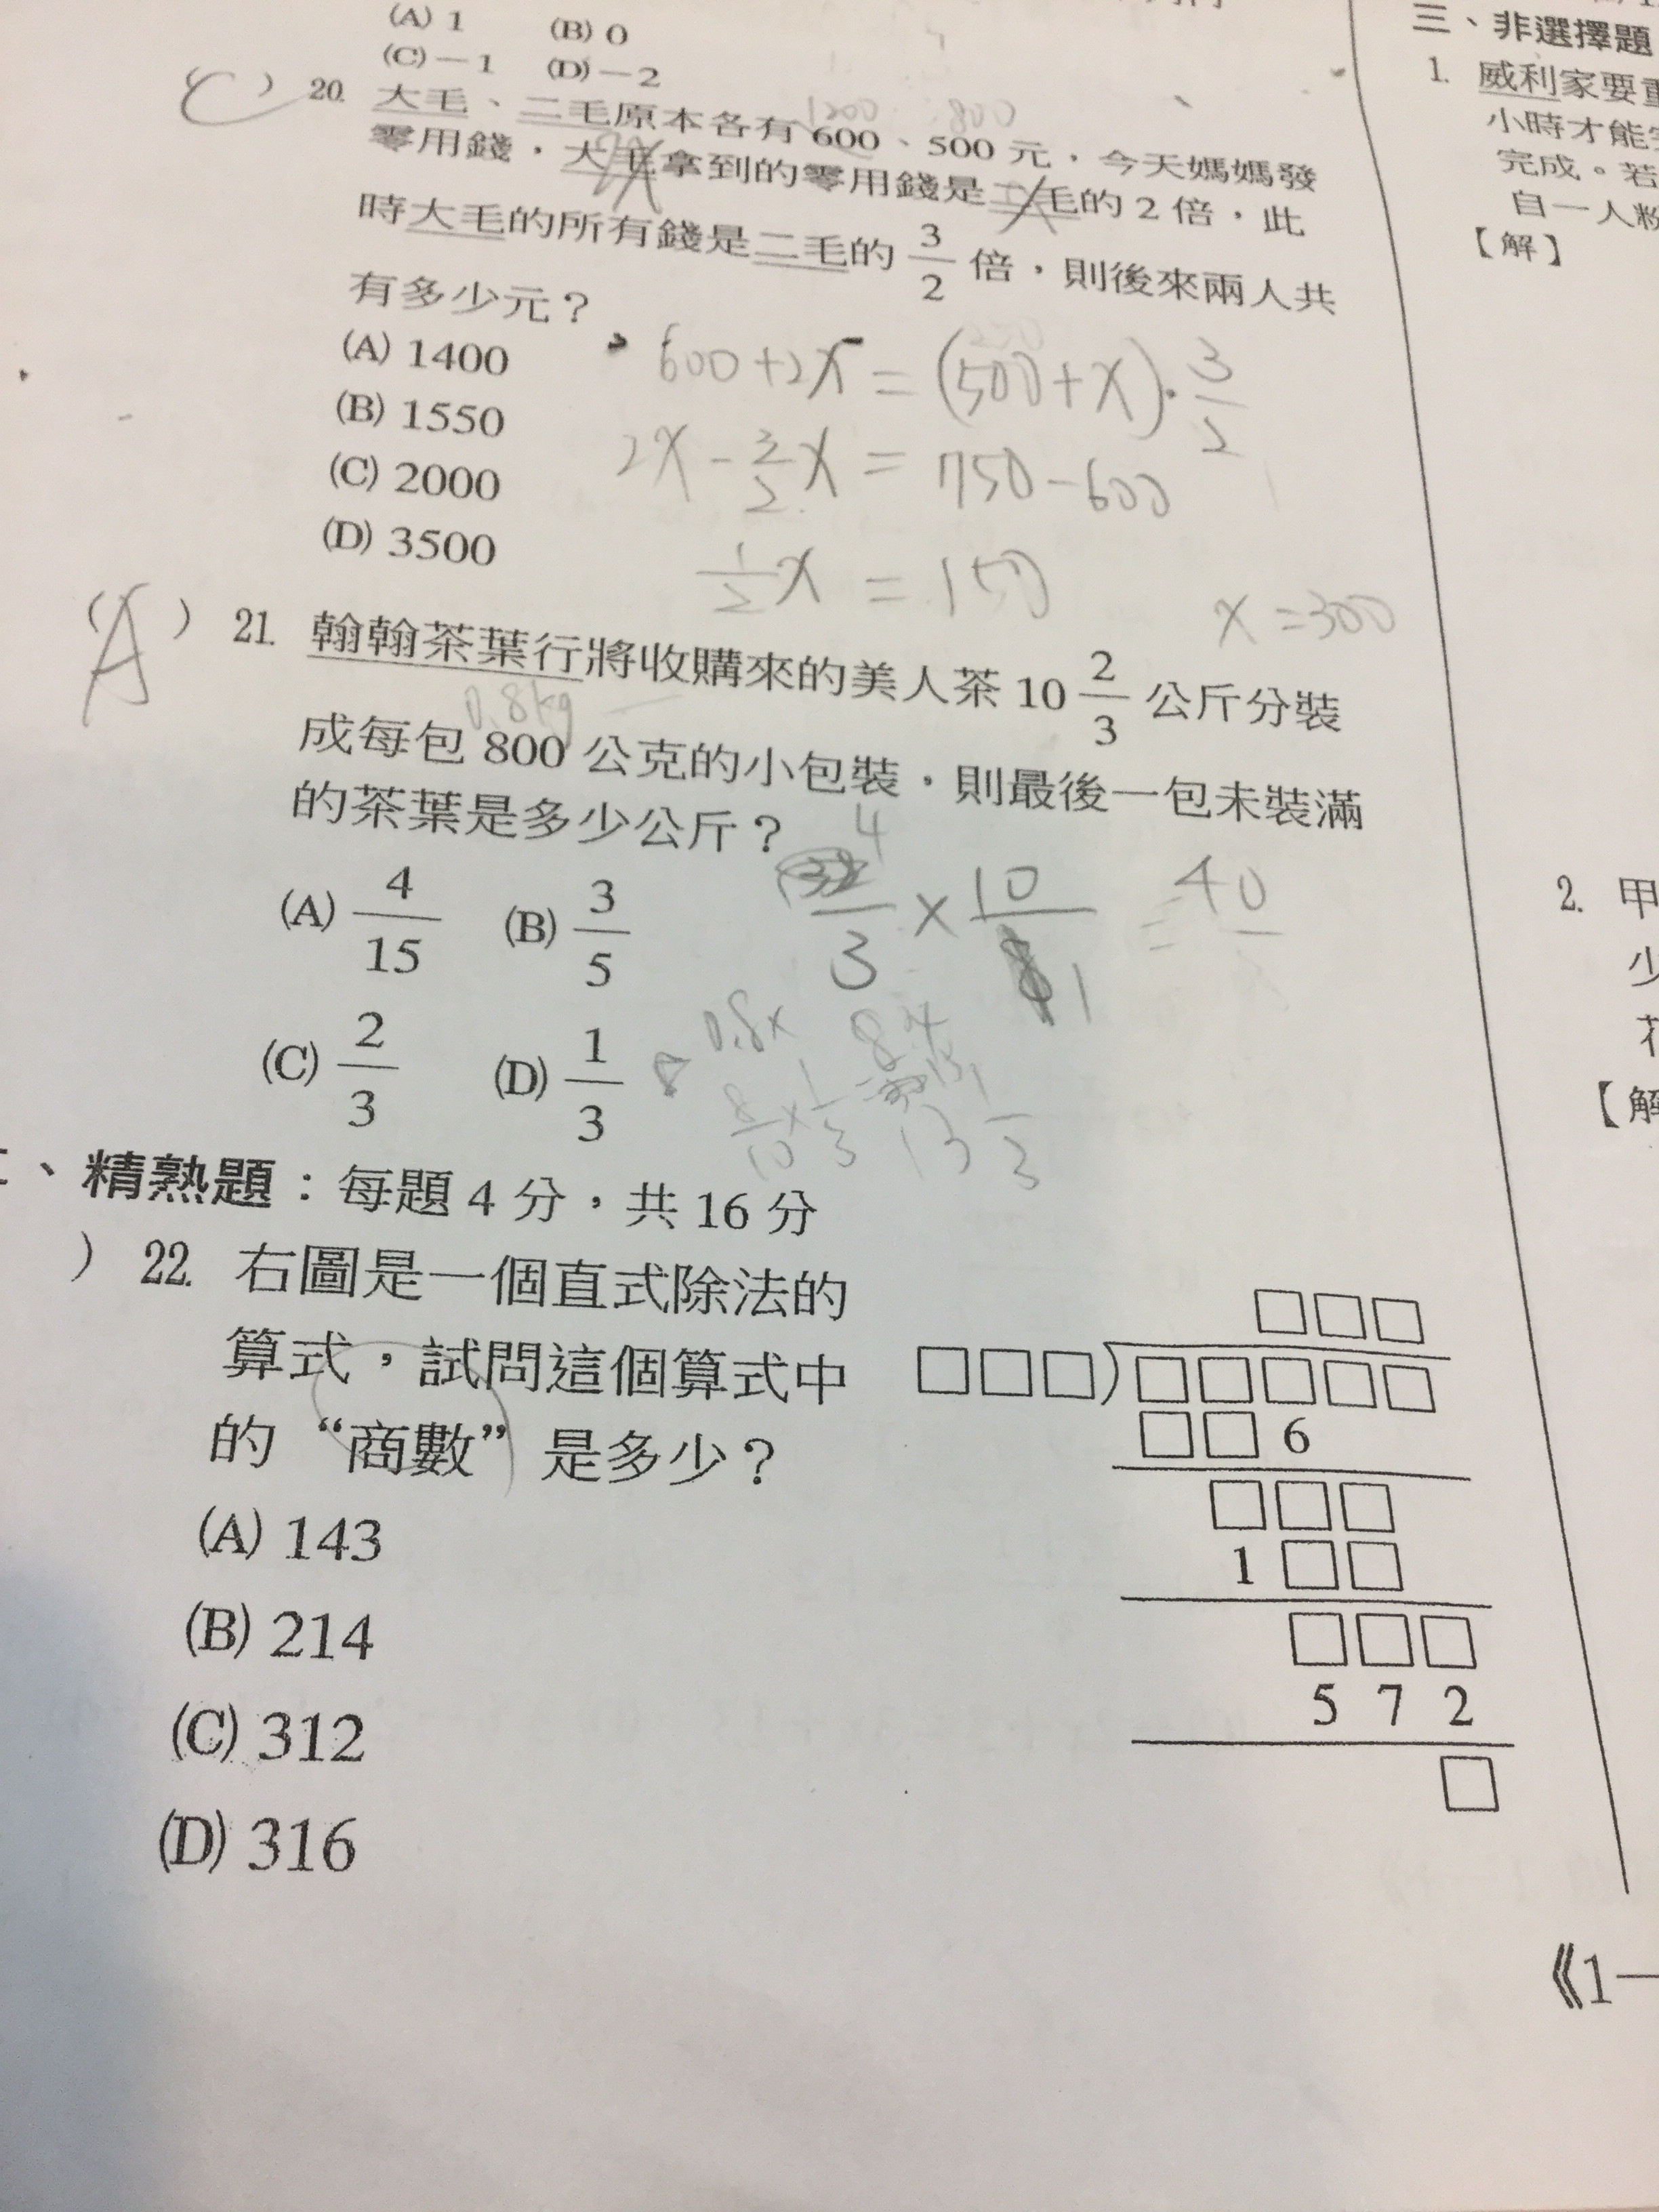 (A) 1 (B) 0
(C) −1 (D) −2
(C) 20. 大毛、二毛原本各有 600、500 元，今天媽媽發
1200 800
零用錢，大毛拿到的零用錢是二毛的 2 倍，此
2X X
時大毛的所有錢是二毛的 3/2 倍，則後來兩人共
有多少元？
(A) 1400
(B) 1550
(C) 2000
(D) 3500
600+2X = (500+X)·3/2
2X − 3/2 X = 750−600
1/2 X = 150
X = 300
(A) 21. 翰翰茶葉行將收購來的美人茶 10 2/3 公斤分裝
0.8kg
成每包 800 公克的小包裝，則最後一包未裝滿
的茶葉是多少公斤？
(A) 4/15 (B) 3/5
(C) 2/3 (D) 1/3
4
3 × 10 1 = 40
0.8×
8/10 × 1/3
13 1/3
、精熟題：每題 4 分，共 16 分
) 22. 右圖是一個直式除法的
算式，試問這個算式中
的“商數”是多少？
(A) 143
(B) 214
(C) 312
(D) 316
□□□
□□□)□□□□□
□□6
□□□
1□□
□□□
572
□
三、非選擇題
1. 威利家要
小時才能
完成。若
自一人粉
【解】
2. 甲
少
【解
《1−